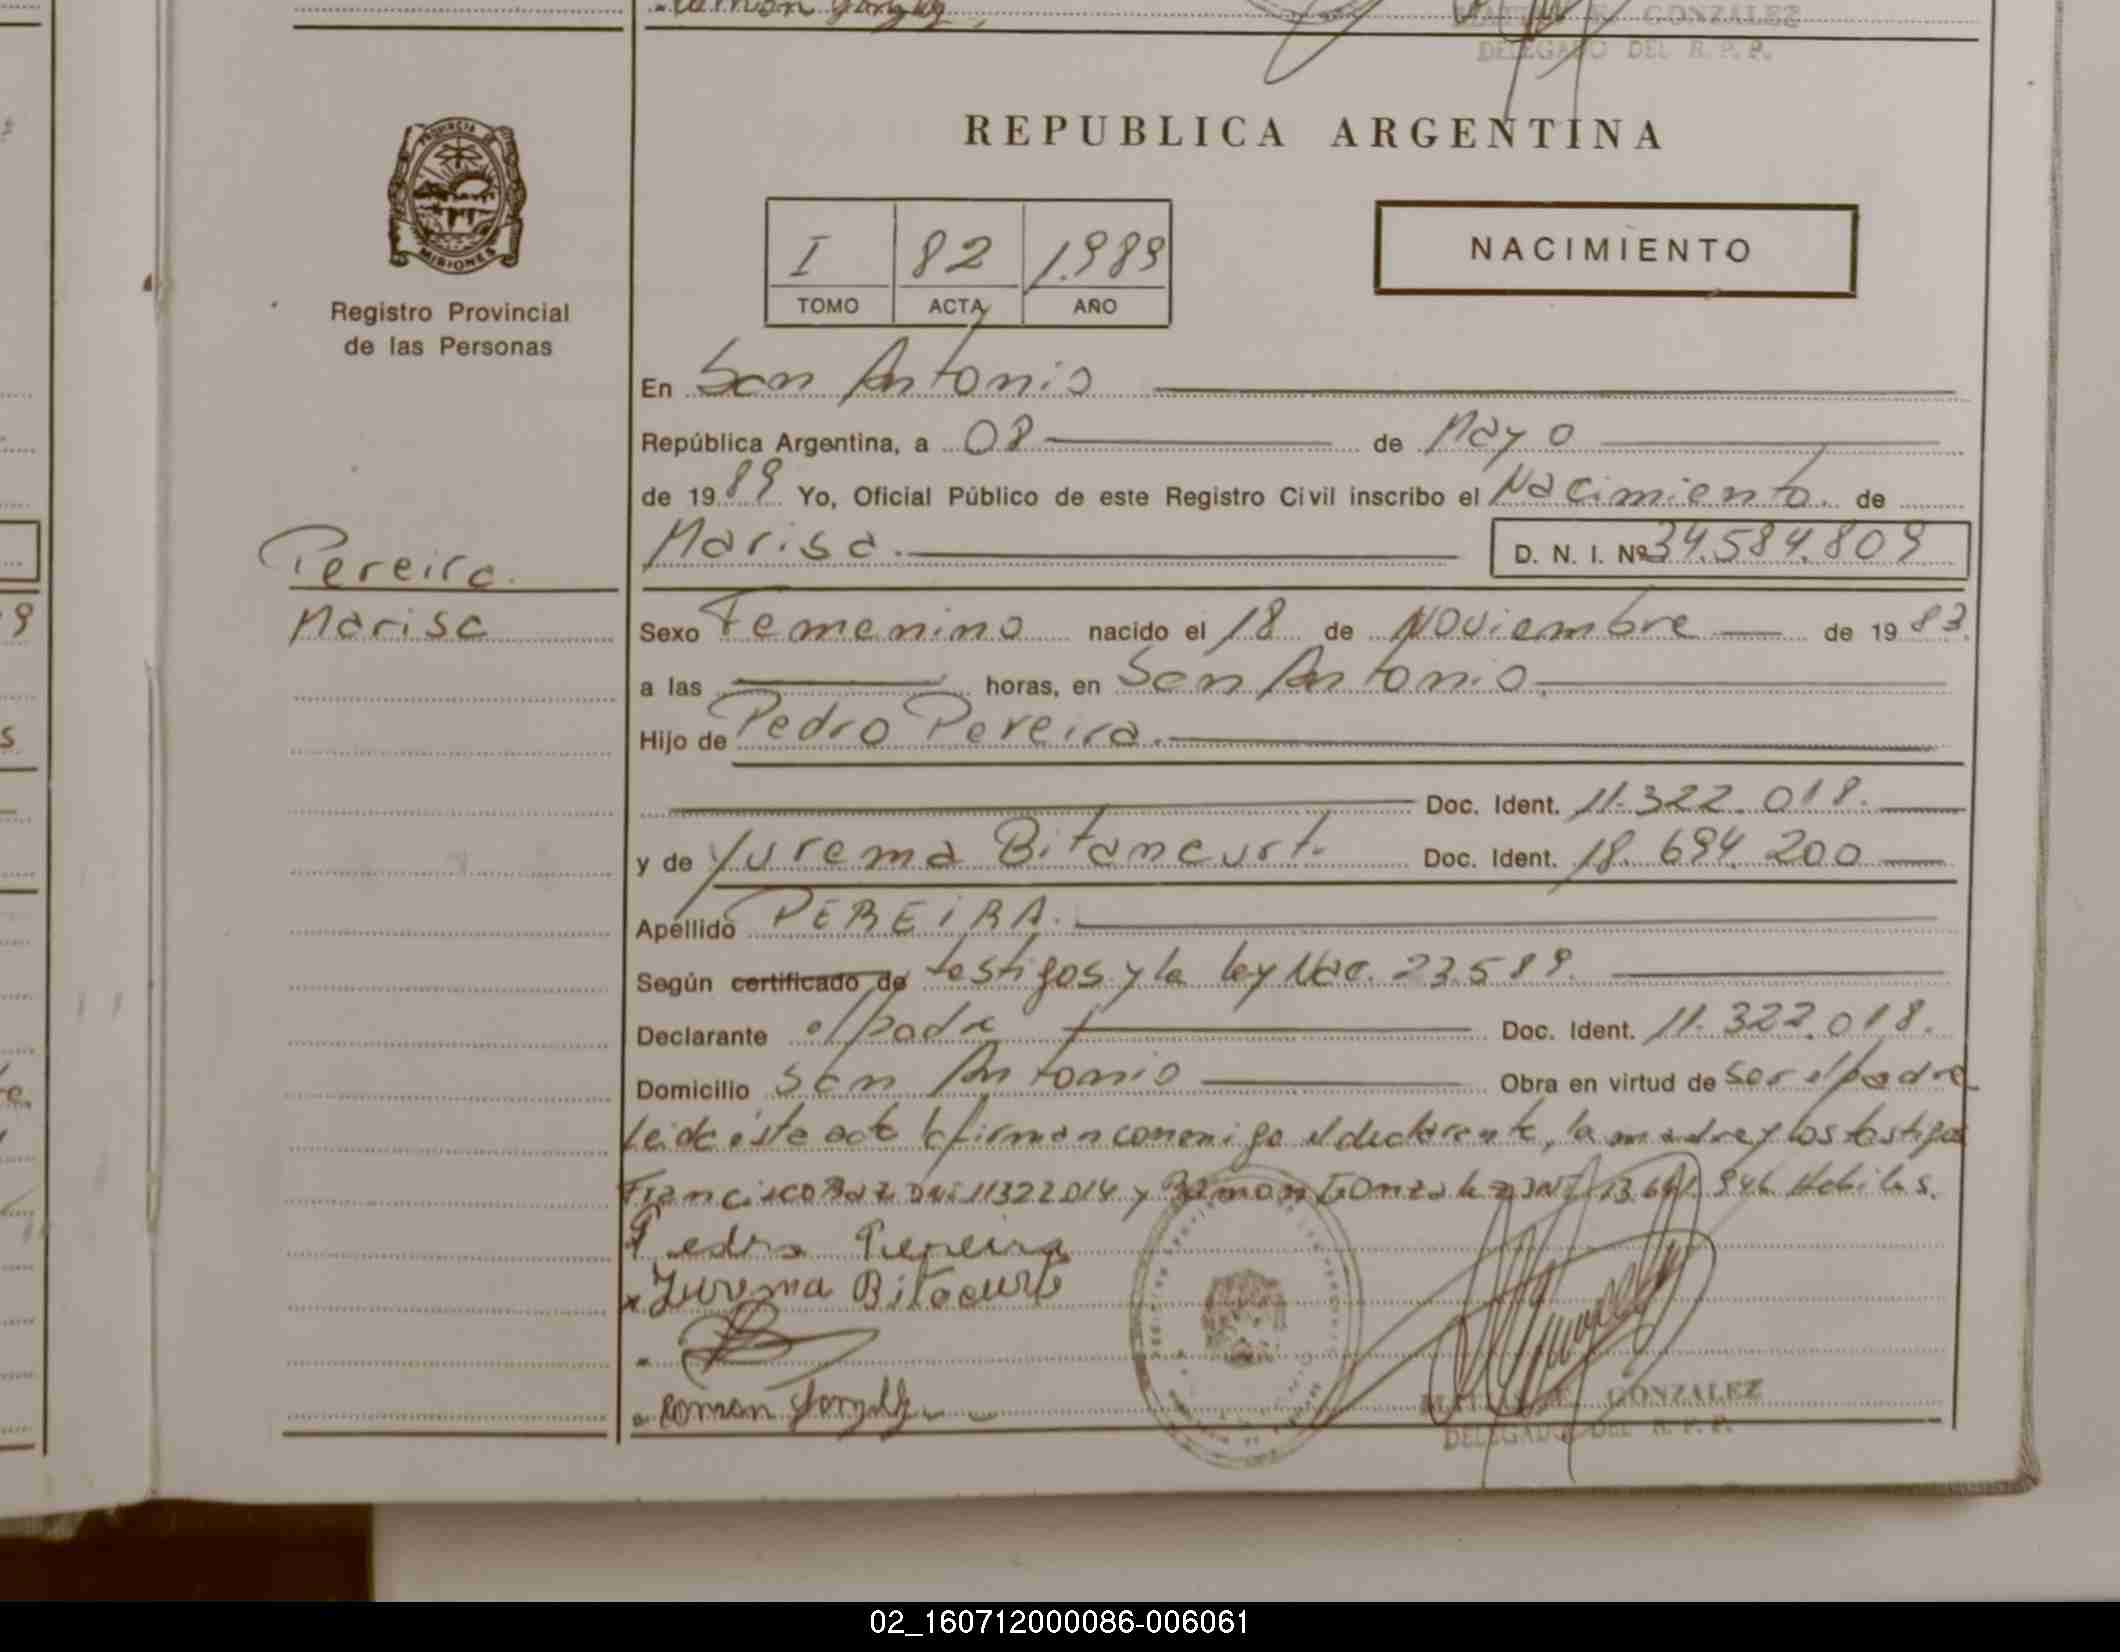 Ramon Gonzalez
GONZALEZ
DELEGADO DEL R. P. P.
PROVINCIA DE
MISIONES
Registro Provincial
de las Personas
REPUBLICA ARGENTINA
I 82 1.989
TOMO ACTA AÑO
NACIMIENTO
En San Antonio
República Argentina, a 08 de Mayo
de 1989 Yo, Oficial Público de este Registro Civil inscribo el Nacimiento. de
Marisa. D. N. I. Nº 34.584.809
Pereira.
Marisa
Sexo Femenino nacido el 18 de Noviembre de 1983.
a las horas, en San Antonio.
Hijo de Pedro Pereira.
Doc. Ident. 11.322.018.
y de Yurema Bitancurt. Doc. Ident. 18.694.200
Apellido PEREIRA.
Según certificado de testigos y la ley Nac. 23.589.
Declarante el padre Doc. Ident. 11.322.018.
Domicilio San Antonio Obra en virtud de ser el padre
Leida este acta la firman conmigo el declarante, la madre y los testigos
Francisco DNI 11322014 y Ramon Gonzalez DNI 13.641.946 Habiles.
Pedro Pereira
x Yurema Bitacurt
Ramon Gonzalez
GONZALEZ
DELEGADO DEL R. P. P.
02_160712000086-006061